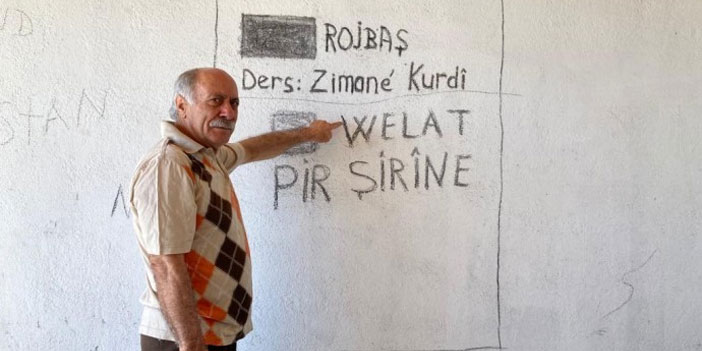 ROJBAŞ
Ders: Zimané Kurdî
WELAT
PIR ŞIRÎNE
STAN